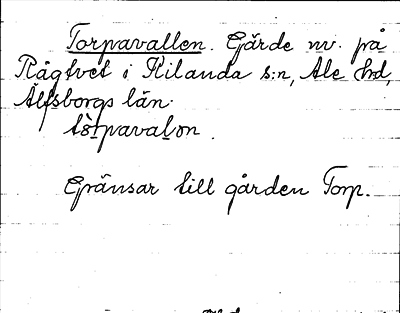 Torpavallen. Gärde nv. på
Rågtvet i Kilanda s:n, Ale hd,
Älfsborgs län.
tòrpavalən.
Gränsar till gården Torp.